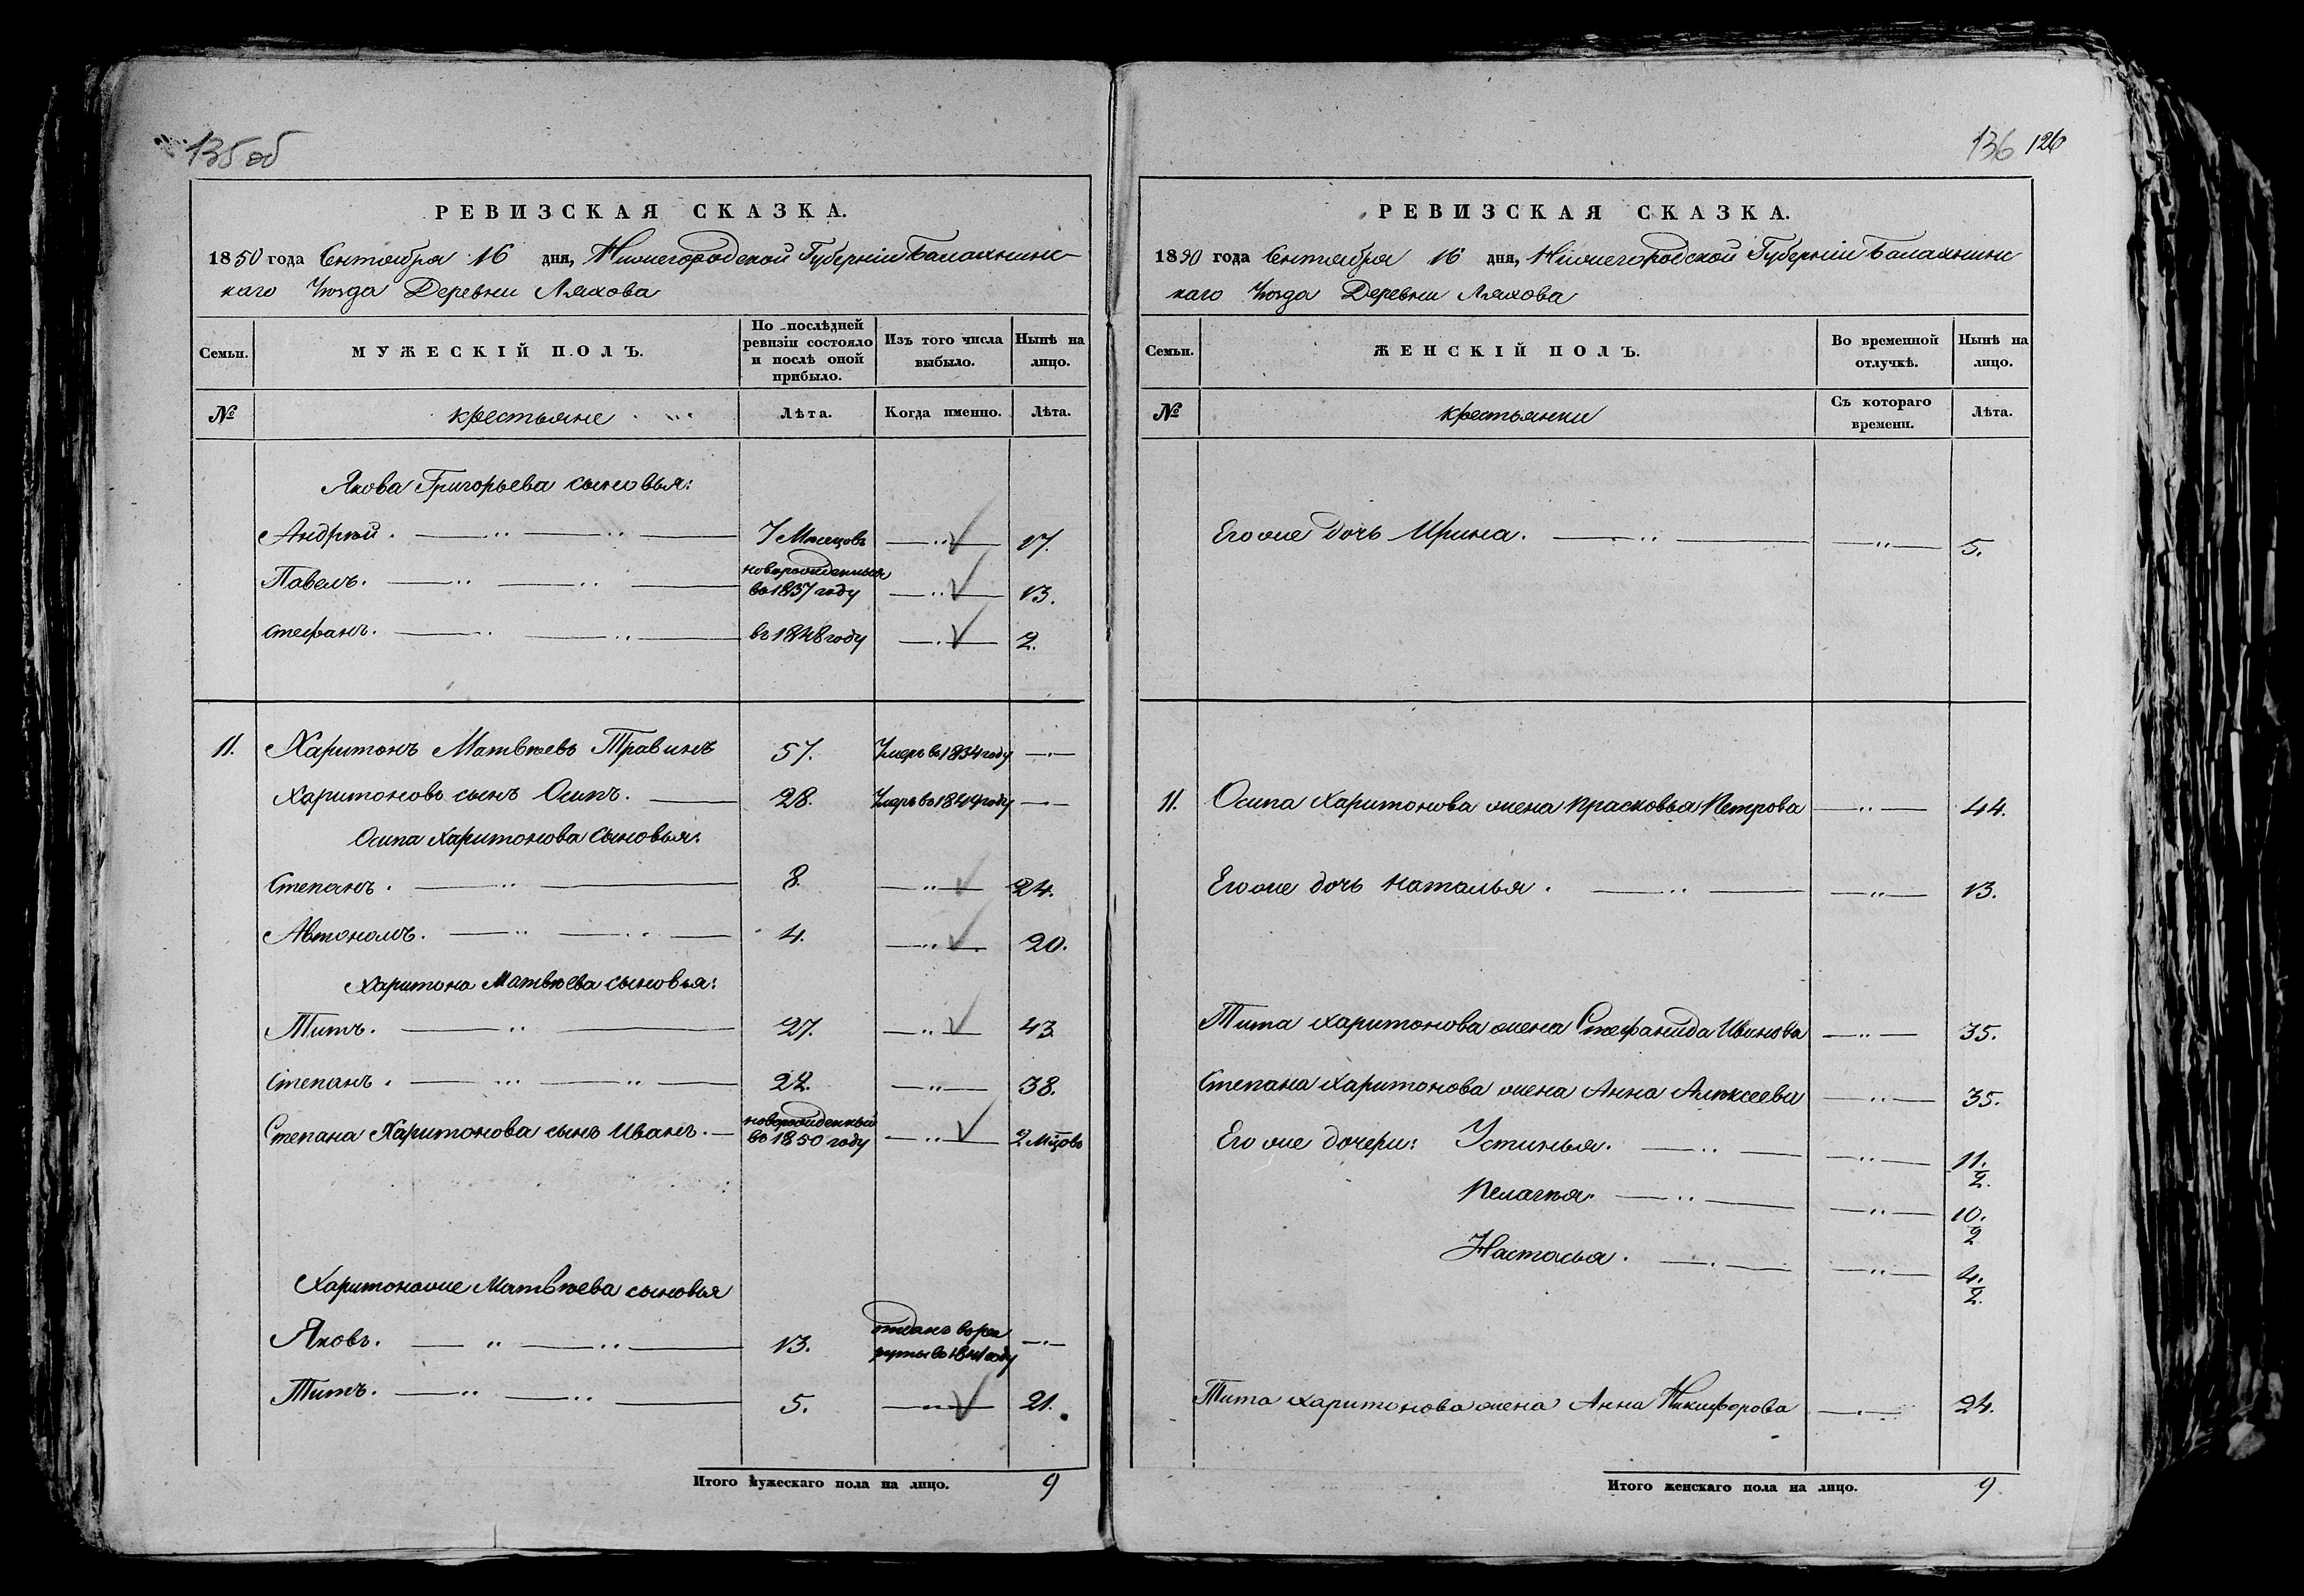 135 об
РЕВИЗСКАЯ СКАЗКА.
1850 года Сентября 16 дня, Нижегородской Губерніи Балахнинс-
каго Уѣзда Деревни Ляхова
Семьи.
МУЖЕСКІЙ ПОЛЪ.
По послѣдней ревизіи состояло и послѣ оной прибыло.
Изъ того числа выбыло.
Нынѣ на лицо.
№
крестьяне
Лѣта.
Когда именно.
Лѣта.
Якова Григорьева сыновья:
Андрѣй. 7 Месецовъ 17.
Павелъ. новорожденный во 1837 году 13.
Стефанъ. въ 1848 году 2.
11. Харитонъ Матвѣевъ Травинъ 57. Умеръ во 1834 году
Харитоновъ сынъ Осипъ. 28. Умеръ во 1844 году
Осипа Харитонова сыновья:
Степанъ. 8. 24.
Автономъ. 4. 20.
Харитона Матвѣева сыновья:
Титъ. 27. 43
Степанъ. 22. 38.
Степана Харитонова сынъ Иванъ. новорожденный во 1850 году 2 мцовъ
Харитонаже Матвѣева сыновья
Яковъ. 13. отданъ во рекруты во 1841 году
Титъ. 5. 21.
Итого мужескаго пола на лицо. 9
136 126
РЕВИЗСКАЯ СКАЗКА.
1850 года Сентября 16 дня, Нижегородской Губерніи Балахнинс
каго Уѣзда Деревни Ляхова
Семьи.
ЖЕНСКІЙ ПОЛЪ.
Во временной отлучкѣ.
Нынѣ на лицо.
№
крестьянки
Съ котораго времени.
Лѣта.
Егоже дочь Ирина. 5.
11. Осипа Харитонова жена Прасковья Петрова 44.
Егоже дочь Наталья. 13.
Тита Харитонова жена Стефанида Иванова 35.
Степана Харитонова жена Анна Алѣксеева 35.
Егоже дочери: Устинья. 11. 2.
Пелагѣя. 10. 2
Настасья. 4. 2.
Тита Харитонова жена Анна Никифорова 24.
Итого женскаго пола на лицо. 9